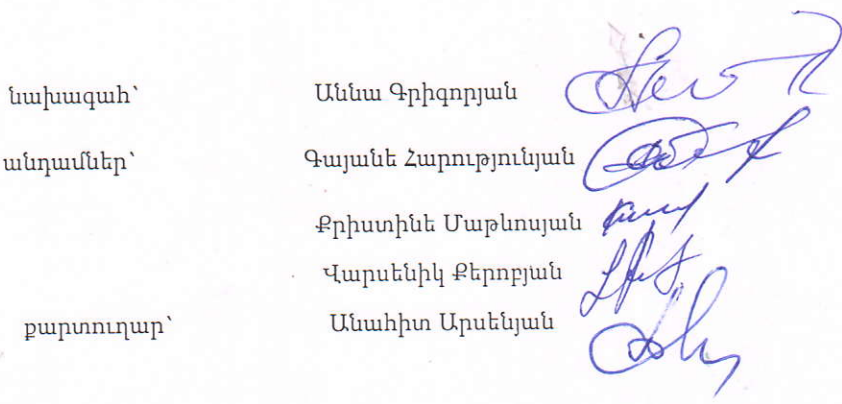 նախագահ՝ Աննա Գրիգորյան
անդամներ՝ Գայանե Հարությունյան
Քրիստինե Մաթևոսյան
Վարսենիկ Քերոբյան
քարտուղար՝ Անահիտ Արսենյան